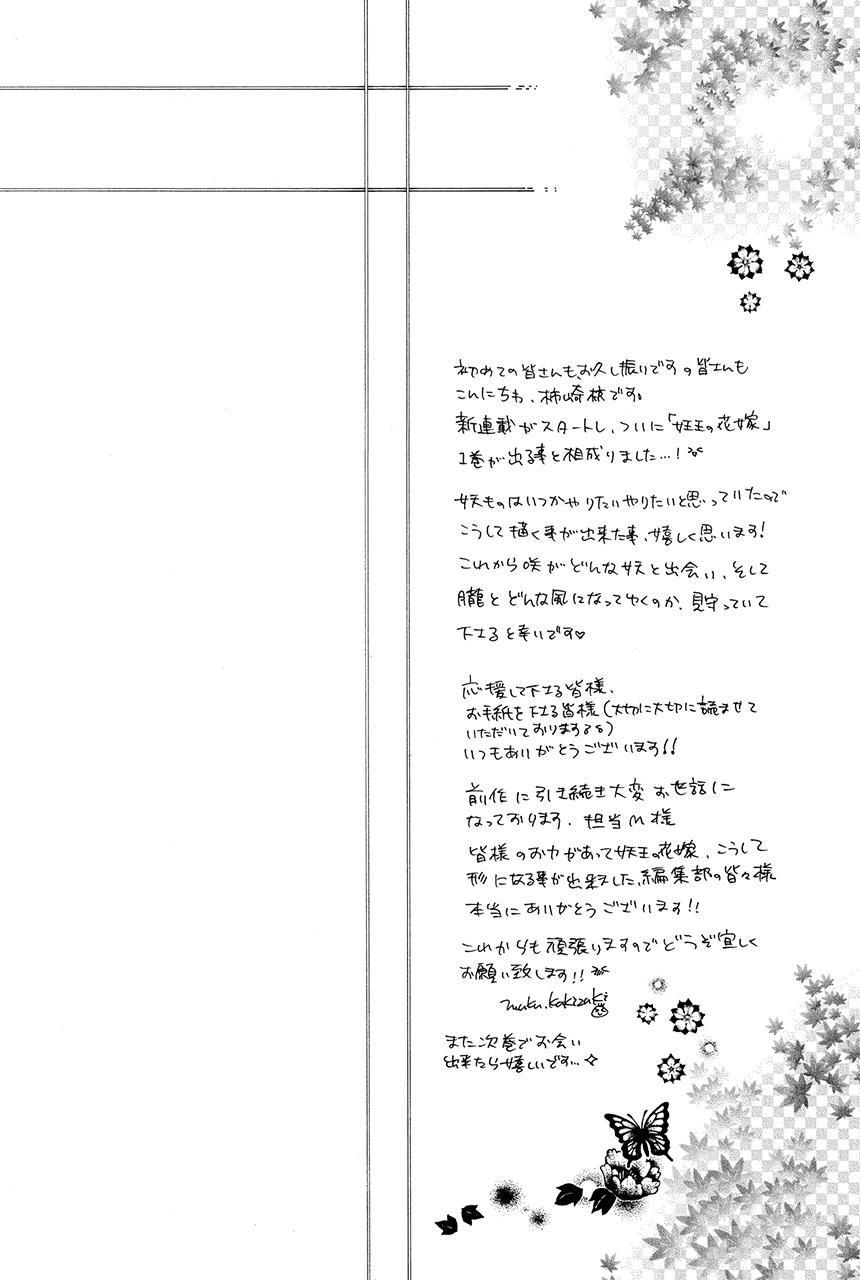 初めての皆さんも、お久し振りですの皆さんも
こんにちわ、柿崎椎です。
新連載がスタートし、ついに「妖王の花嫁」
1巻が出る事と相成りました…!
妖ものはいつかやりたいやりたいと思っていたので
こうして描く事が出来た事、嬉しく思います!
これから咲がどんな妖と出会い、そして
朧とどんな風になってゆくのか、見守っていて
下さると幸いです♡
応援して下さる皆様、
お手紙を下さる皆様(大切に大切に読ませて
いただいております)
いつもありがとうございます!!
前作に引き続き大変お世話に
なっております、担当M様
皆様のお力があって妖王の花嫁、こうして
形になる事が出来ました、編集部の皆々様
本当にありがとうございます!!
これからも頑張りますのでどうぞ宜しく
お願い致します!!
maku.kakizaki
また次巻でお会い
出来たら嬉しいです…✧